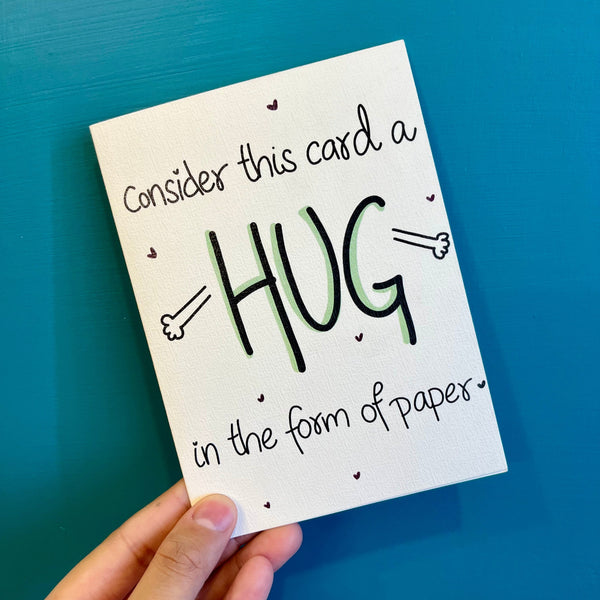 Consider this card a
HUG
in the form of paper